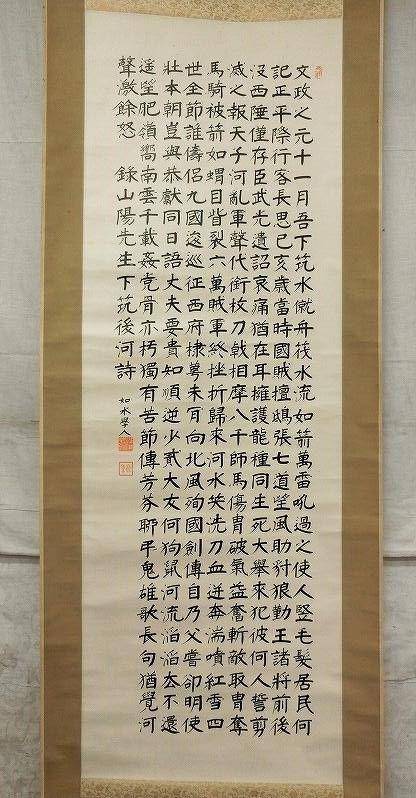 文政之元十一月吾下筑水僦舟筏水流如箭萬雷吼過之使人竪毛髮居民何
記正平際行客長思己亥歲當時國賊擅鴟張七道望風助豺狼勤王諸將前後
沒西陲僅存臣武光遺詔哀痛猶在耳擁護龍種同生死大舉來犯彼何人誓剪
滅之報天子河亂軍聲代銜枚刀戟相摩八千師馬傷冑破氣益奮斬敵取冑奪
馬騎被箭如蝟目眥裂六萬賊軍終挫折歸來河水笑洗刀血迸奔湍噴紅雪四
世全節誰儔侶九國逡巡征西府棣萼未肯向北風殉國劍傳自乃父嘗卻明使
壯本朝豈與恭獻同日語丈夫要貴知順逆少貳大友何狗鼠河流滔滔去不還
遙望肥嶺嚮南雲千載姦党骨亦朽獨有苦節傳芳芬聊弔鬼雄歌長句猶覺河
聲激餘怒 錄山陽先生下筑後河詩
如水學人